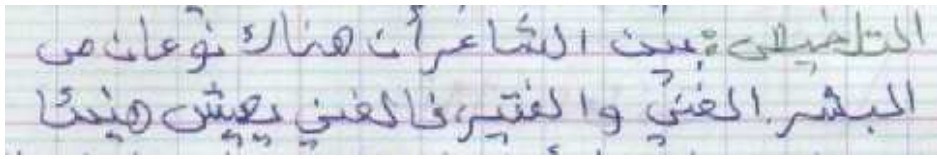 التلخيص: بين الشاعر أن هناك نوعان من
البشر. الغني والفقير، فالغني يعيش هنيئا